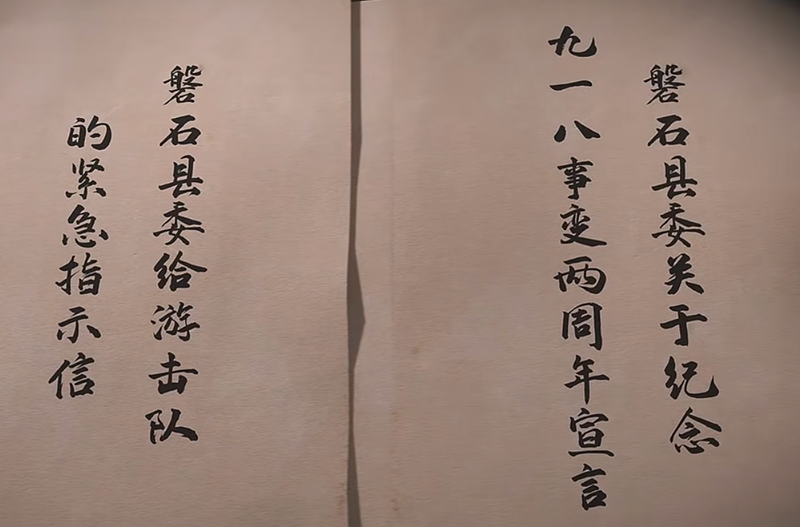 磐石县委关于纪念
九一八事变两周年宣言
磐石县委给游击队
的紧急指示信